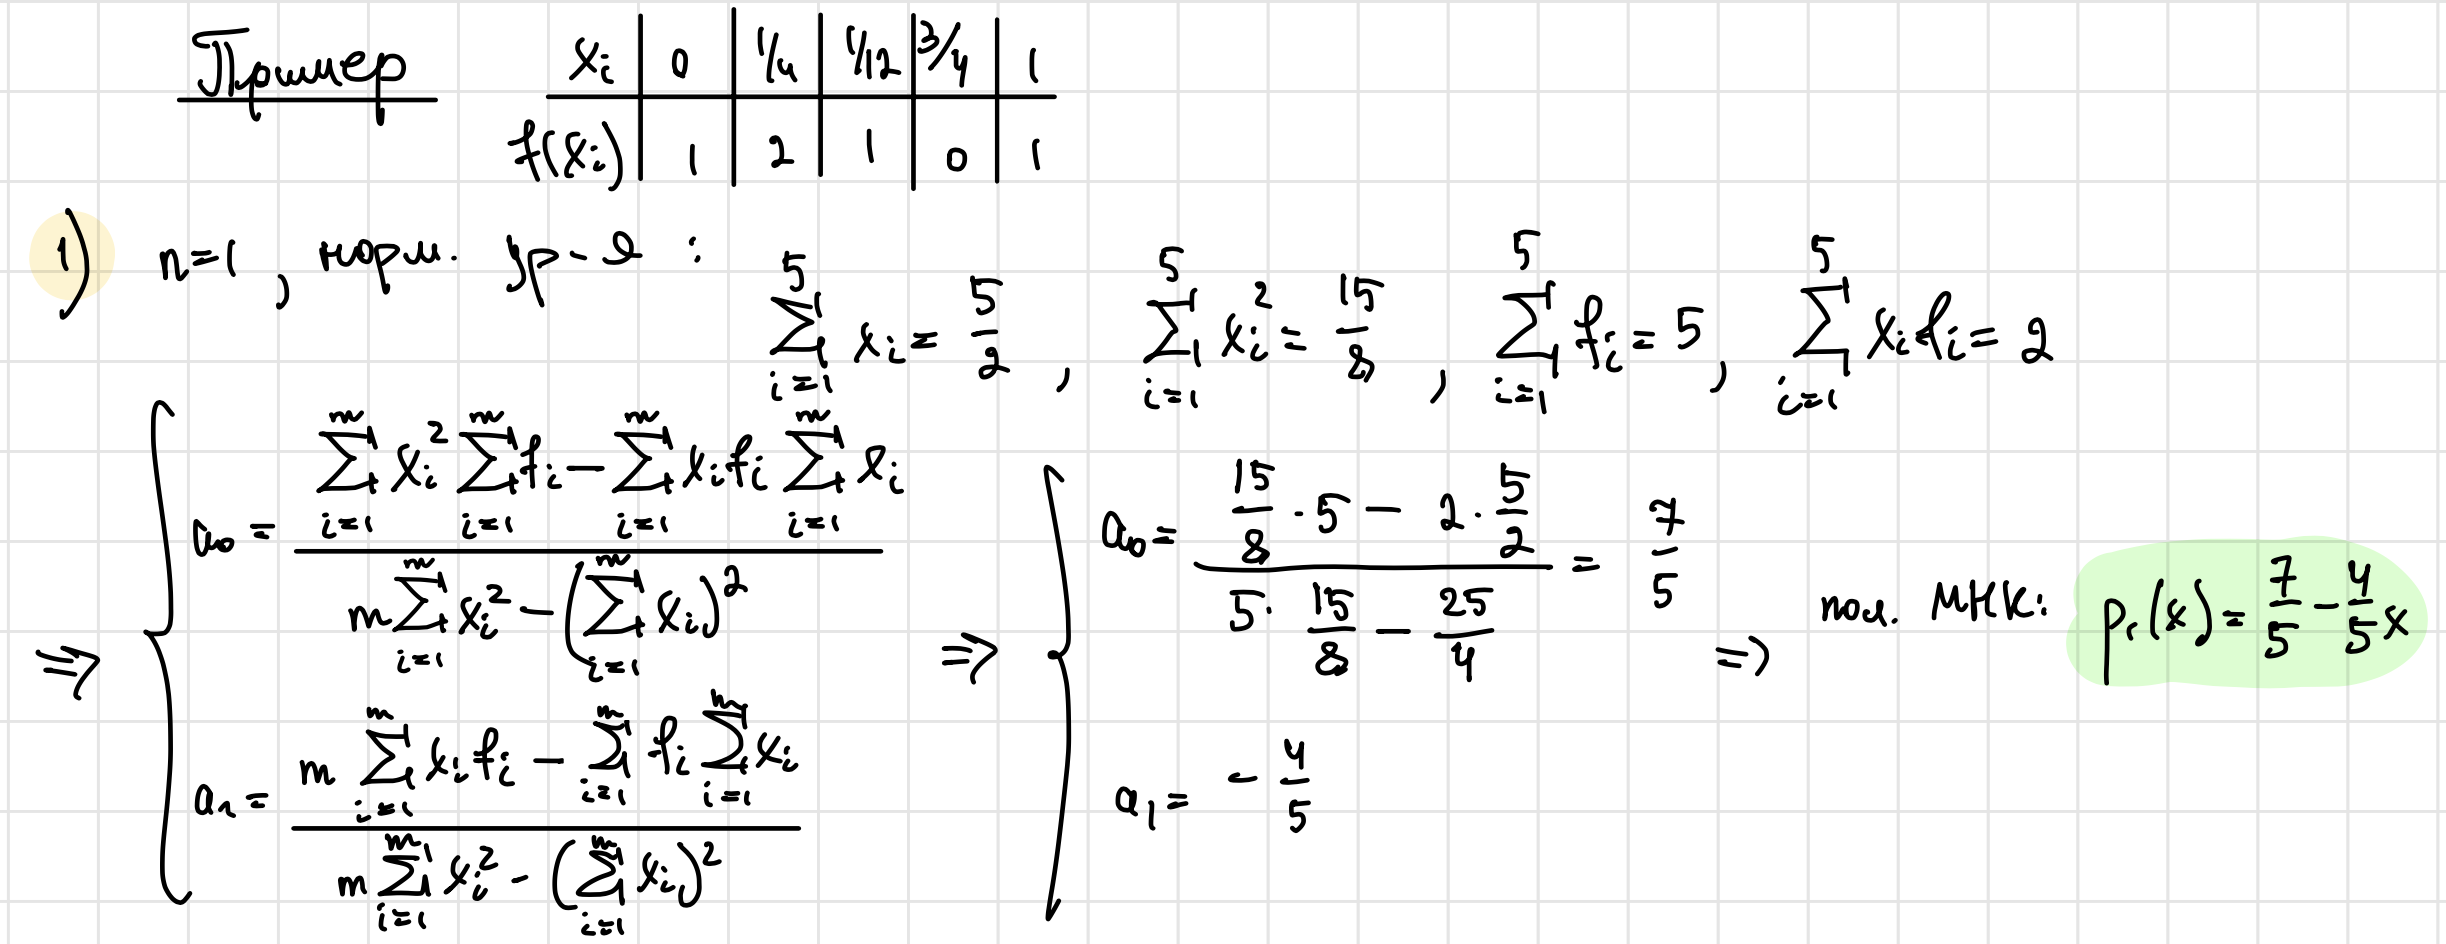 Пример
x_i | 0 | 1/4 | 1/12 | 3/4 | 1
f(x_i) | 1 | 2 | 1 | 0 | 1
1) n=1, норм. ур-е:
\sum_{i=1}^{5} x_i = \frac{5}{2}, \sum_{i=1}^{5} x_i^2 = \frac{15}{8}, \sum_{i=1}^{5} f_i = 5, \sum_{i=1}^{5} x_i f_i = 2
⇒ { a_0 = \frac{\sum_{i=1}^{m} x_i^2 \sum_{i=1}^{m} f_i - \sum_{i=1}^{m} x_i f_i \sum_{i=1}^{m} x_i}{m \sum_{i=1}^{m} x_i^2 - (\sum_{i=1}^{m} x_i)^2}
a_1 = \frac{m \sum_{i=1}^{m} x_i f_i - \sum_{i=1}^{m} f_i \sum_{i=1}^{m} x_i}{m \sum_{i=1}^{m} x_i^2 - (\sum_{i=1}^{m} x_i)^2}
⇒ { a_0 = \frac{\frac{15}{8} · 5 - 2 · \frac{5}{2}}{5 · \frac{15}{8} - \frac{25}{4}} = \frac{7}{5}
a_1 = -\frac{4}{5}
⇒ пол. МНК: p_1(x) = \frac{7}{5} - \frac{4}{5} x